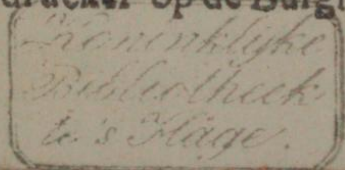 drucker op de Burg
Koninklijke
Bibliotheek
te's Hage.